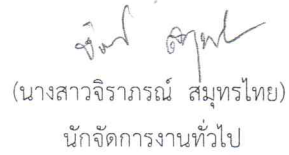 (นางสาวจิราภรณ์ สมุทรไทย)
นักจัดการงานทั่วไป